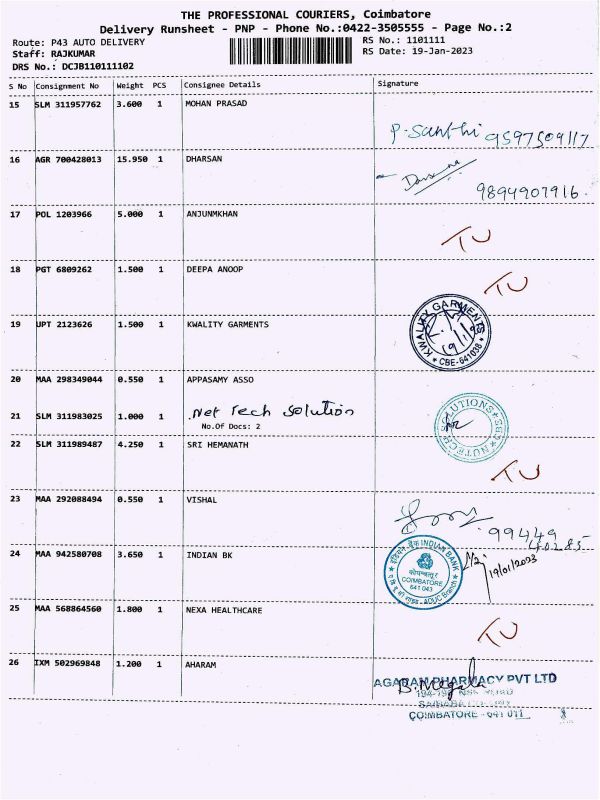 THE PROFESSIONAL COURIERS, Coimbatore
Delivery Runsheet - PNP - Phone No.:0422-3505555 - Page No.:2
Route: P43 AUTO DELIVERY RS No.: 1101111
Staff: RAJKUMAR RS Date: 19-Jan-2023
DRS No.: DCJB110111102
S No Consignment No Weight PCS Consignee Details Signature
15 SLM 311957762 3.600 1 MOHAN PRASAD
P. Santhi 9597509117
16 AGR 700428013 15.950 1 DHARSAN
9894907916.
17 POL 1203966 5.000 1 ANJUNMKHAN
TU
18 PGT 6809262 1.500 1 DEEPA ANOOP
TU
19 UPT 2123626 1.500 1 KWALITY GARMENTS
KWALITY GARMENTS
CBE-641038
20 MAA 298349044 0.550 1 APPASAMY ASSO
21 SLM 311983025 1.000 1 .Net Tech Solution
No.Of Docs: 2
NUTECH SOLUTIONS
22 SLM 311989487 4.250 1 SRI HEMANATH
TU
23 MAA 292088494 0.550 1 VISHAL
99449
40285
24 MAA 942580708 3.650 1 INDIAN BK
INDIAN BANK
कोयम्बतूर
COIMBATORE
641 043
ADUC Branch
19/01/2023
25 MAA 568864560 1.800 1 NEXA HEALTHCARE
TU
26 IXM 502969848 1.200 1 AHARAM
AGARAM PHARMACY PVT LTD
B. Megala
COIMBATORE - 641 011